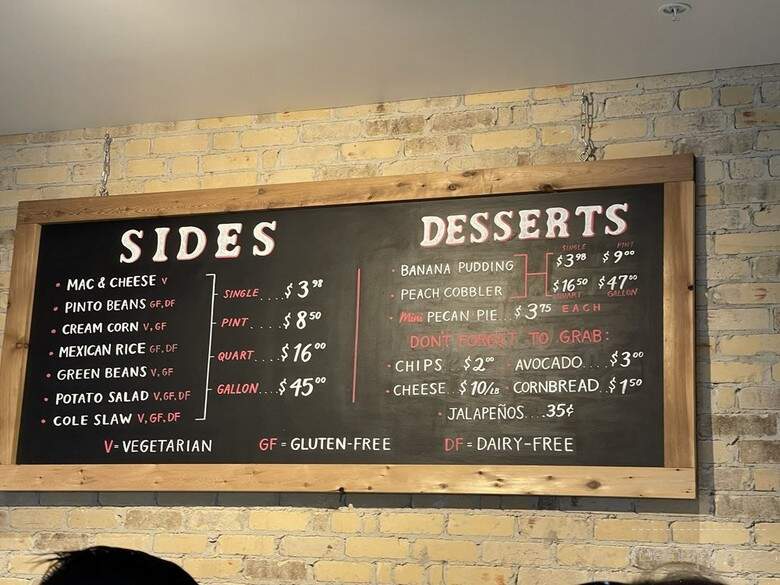 SIDES
MAC & CHEESE V
PINTO BEANS GF, DF
CREAM CORN V, GF
MEXICAN RICE GF, DF
GREEN BEANS V, GF
POTATO SALAD V, GF, DF
COLE SLAW V, GF, DF
SINGLE....$3.98
PINT....$8.50
QUART....$16.00
GALLON....$45.00
DESSERTS
BANANA PUDDING
PEACH COBBLER
SINGLE PINT
$3.98 $9.00
$16.50 $47.00
QUART GALLON
Mini PECAN PIE...$3.75 EACH
DON'T FORGET TO GRAB:
CHIPS...$2.00 AVOCADO....$3.00
CHEESE...$10/LB CORNBREAD...$1.50
JALAPEÑOS....35¢
V = VEGETARIAN GF = GLUTEN-FREE DF = DAIRY-FREE